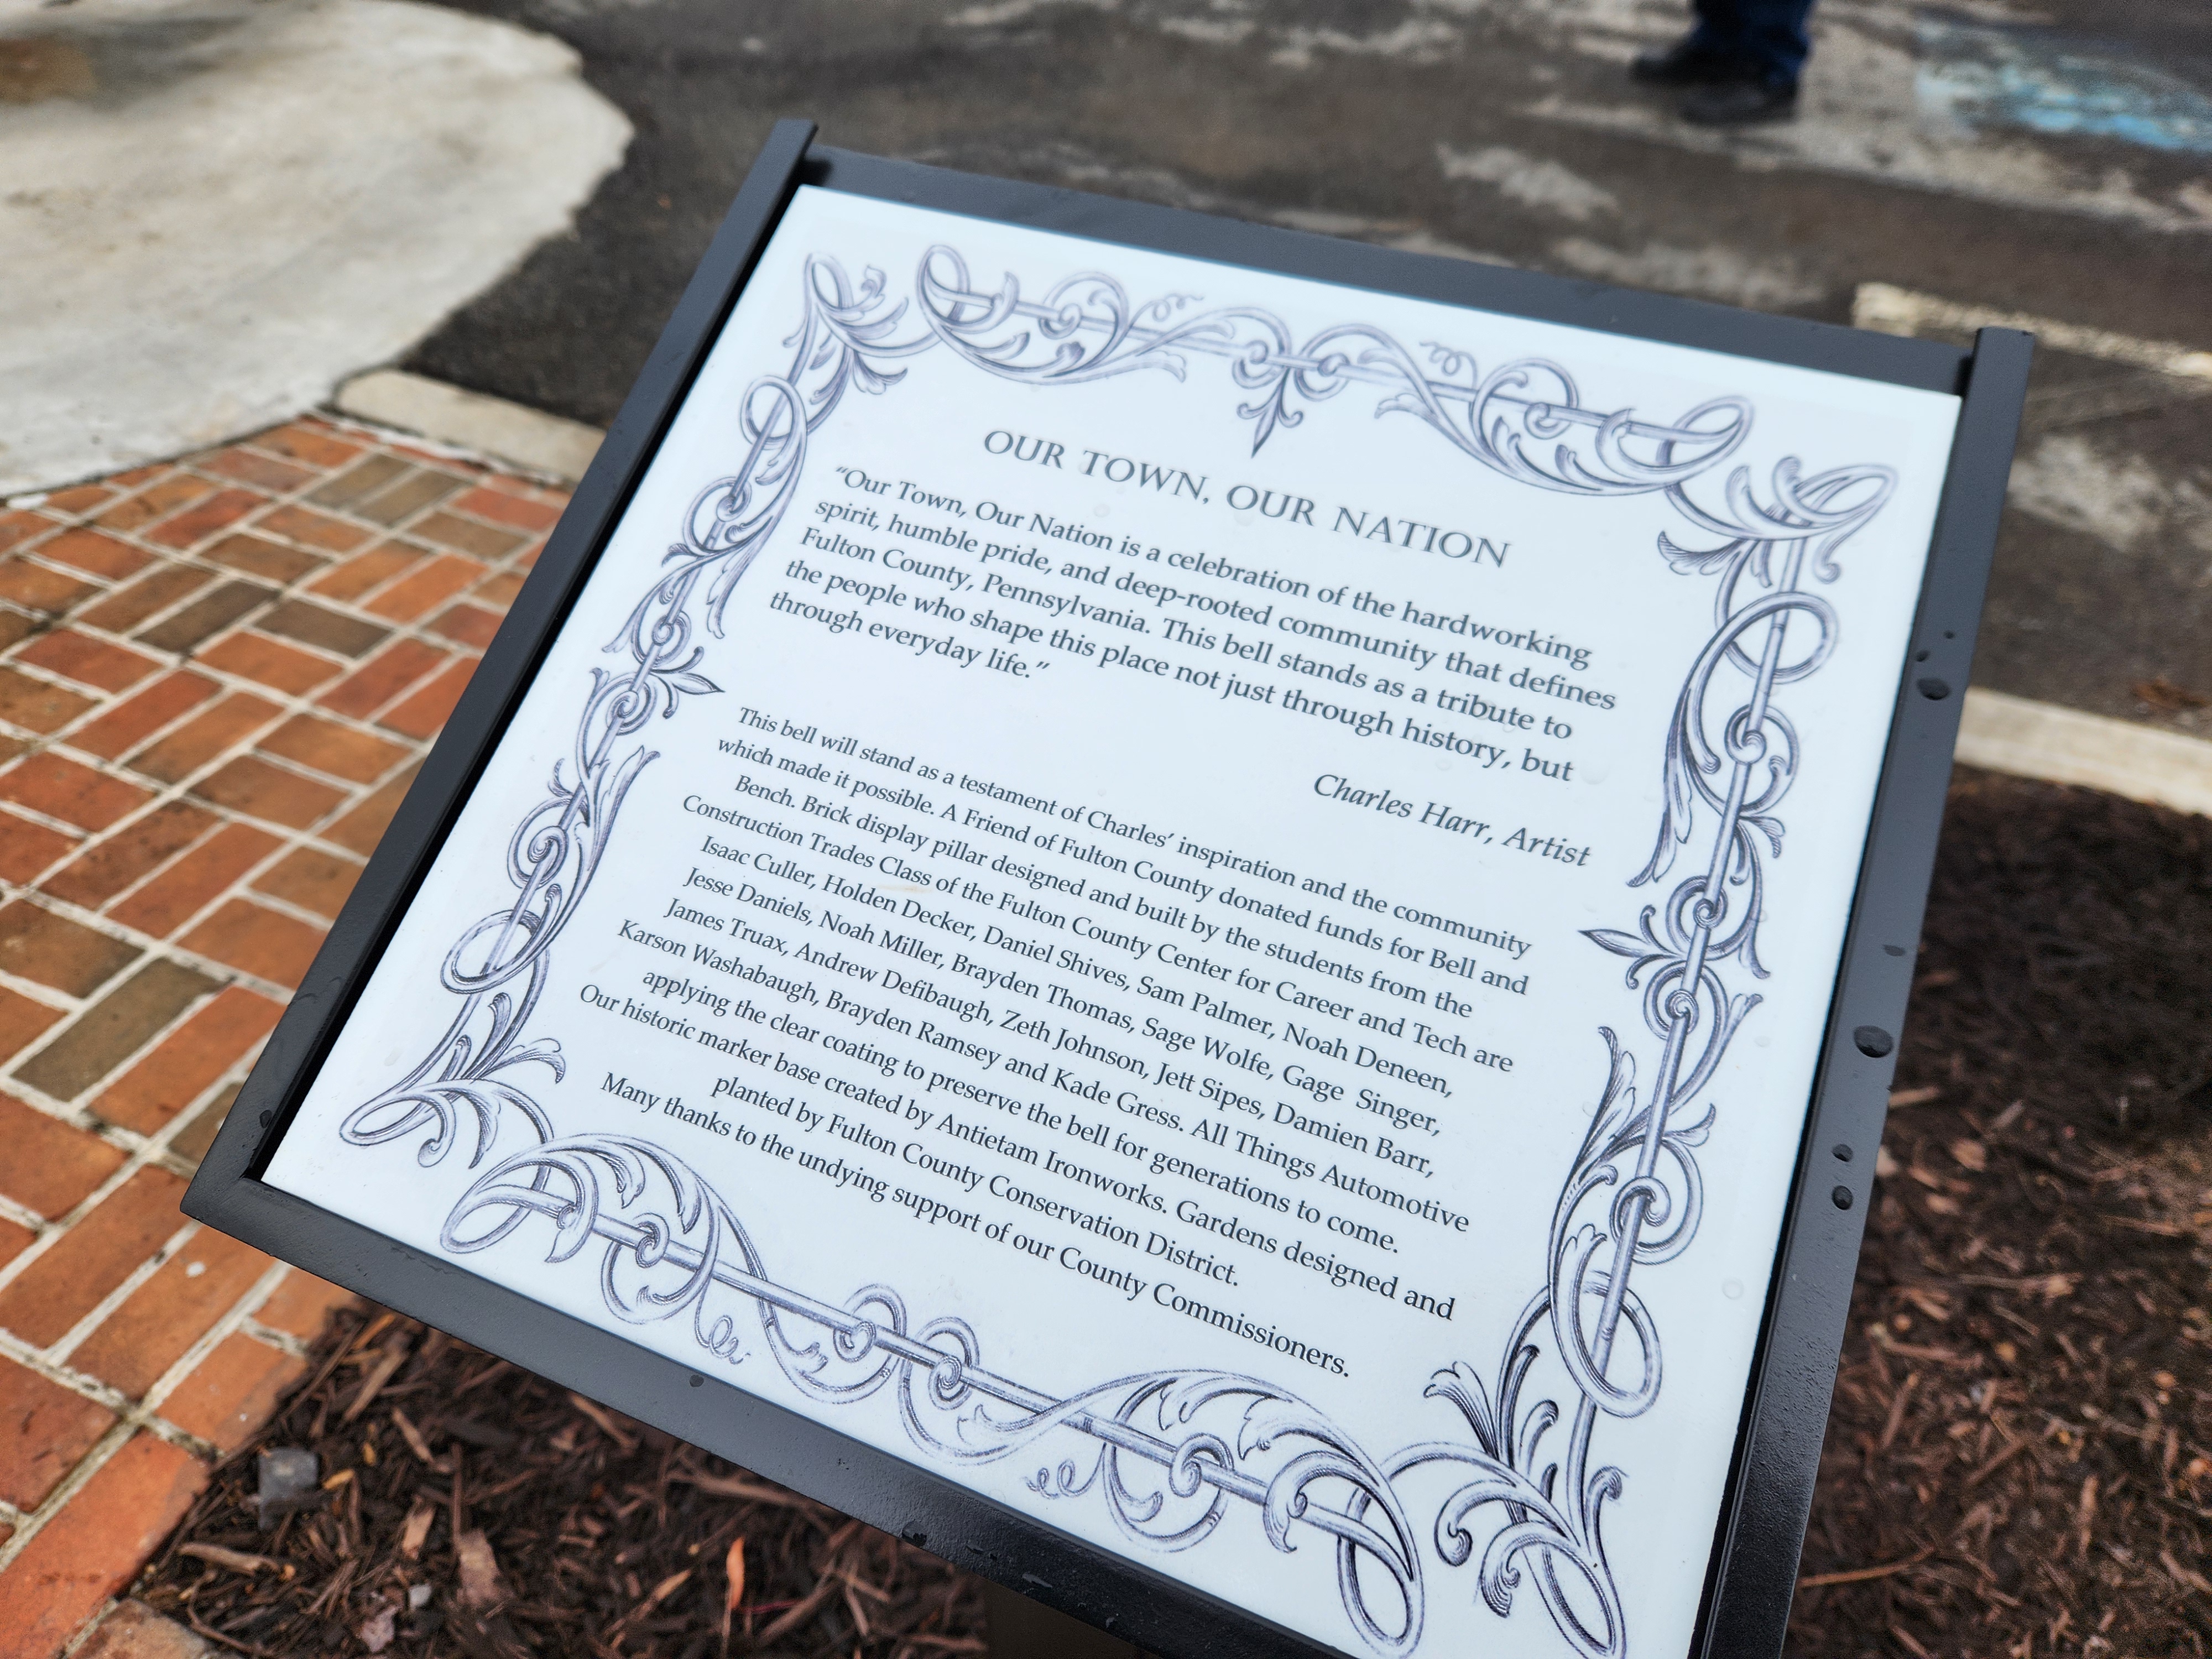 OUR TOWN, OUR NATION
“Our Town, Our Nation is a celebration of the hardworking
spirit, humble pride, and deep-rooted community that defines
Fulton County, Pennsylvania. This bell stands as a tribute to
the people who shape this place not just through history, but
through everyday life.”
Charles Harr, Artist
This bell will stand as a testament of Charles’ inspiration and the community
which made it possible. A Friend of Fulton County donated funds for Bell and
Bench. Brick display pillar designed and built by the students from the
Construction Trades Class of the Fulton County Center for Career and Tech are
Isaac Culler, Holden Decker, Daniel Shives, Sam Palmer, Noah Deneen,
Jesse Daniels, Noah Miller, Brayden Thomas, Sage Wolfe, Gage Singer,
James Truax, Andrew Defibaugh, Zeth Johnson, Jett Sipes, Damien Barr,
Karson Washabaugh, Brayden Ramsey and Kade Gress. All Things Automotive
applying the clear coating to preserve the bell for generations to come.
Our historic marker base created by Antietam Ironworks. Gardens designed and
planted by Fulton County Conservation District.
Many thanks to the undying support of our County Commissioners.